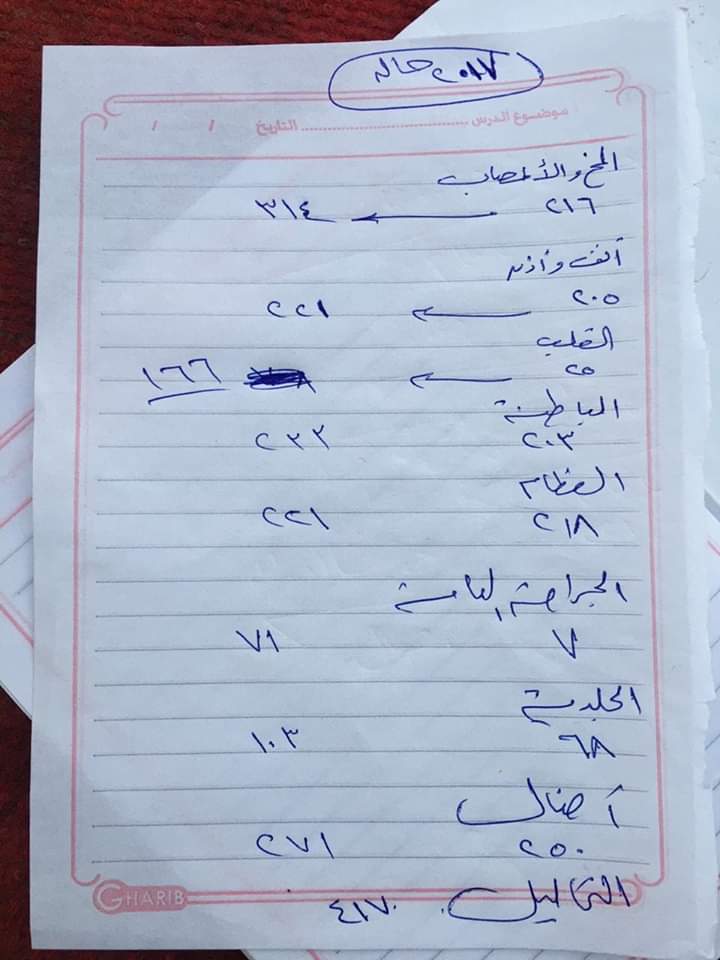 ٢٠١٧ حاله
موضوع الدرس .................... التاريخ / /
المخ والأعصاب
٢١٦ ← ٣١٤
أنف وأذن
٢٠٥ ← ٢٢١
القلب
٢٥ ← ١٦٦
الباطنة
٢٠٣ ٢٣٢
العظام
٢١٨ ٢٢١
الجراحة العامة
٧ ٧١
الجلدية
٦٨ ١٠٣
أطفال
٢٥٠ ٢٧١
التحاليل ٤١٧٠
GHARIB